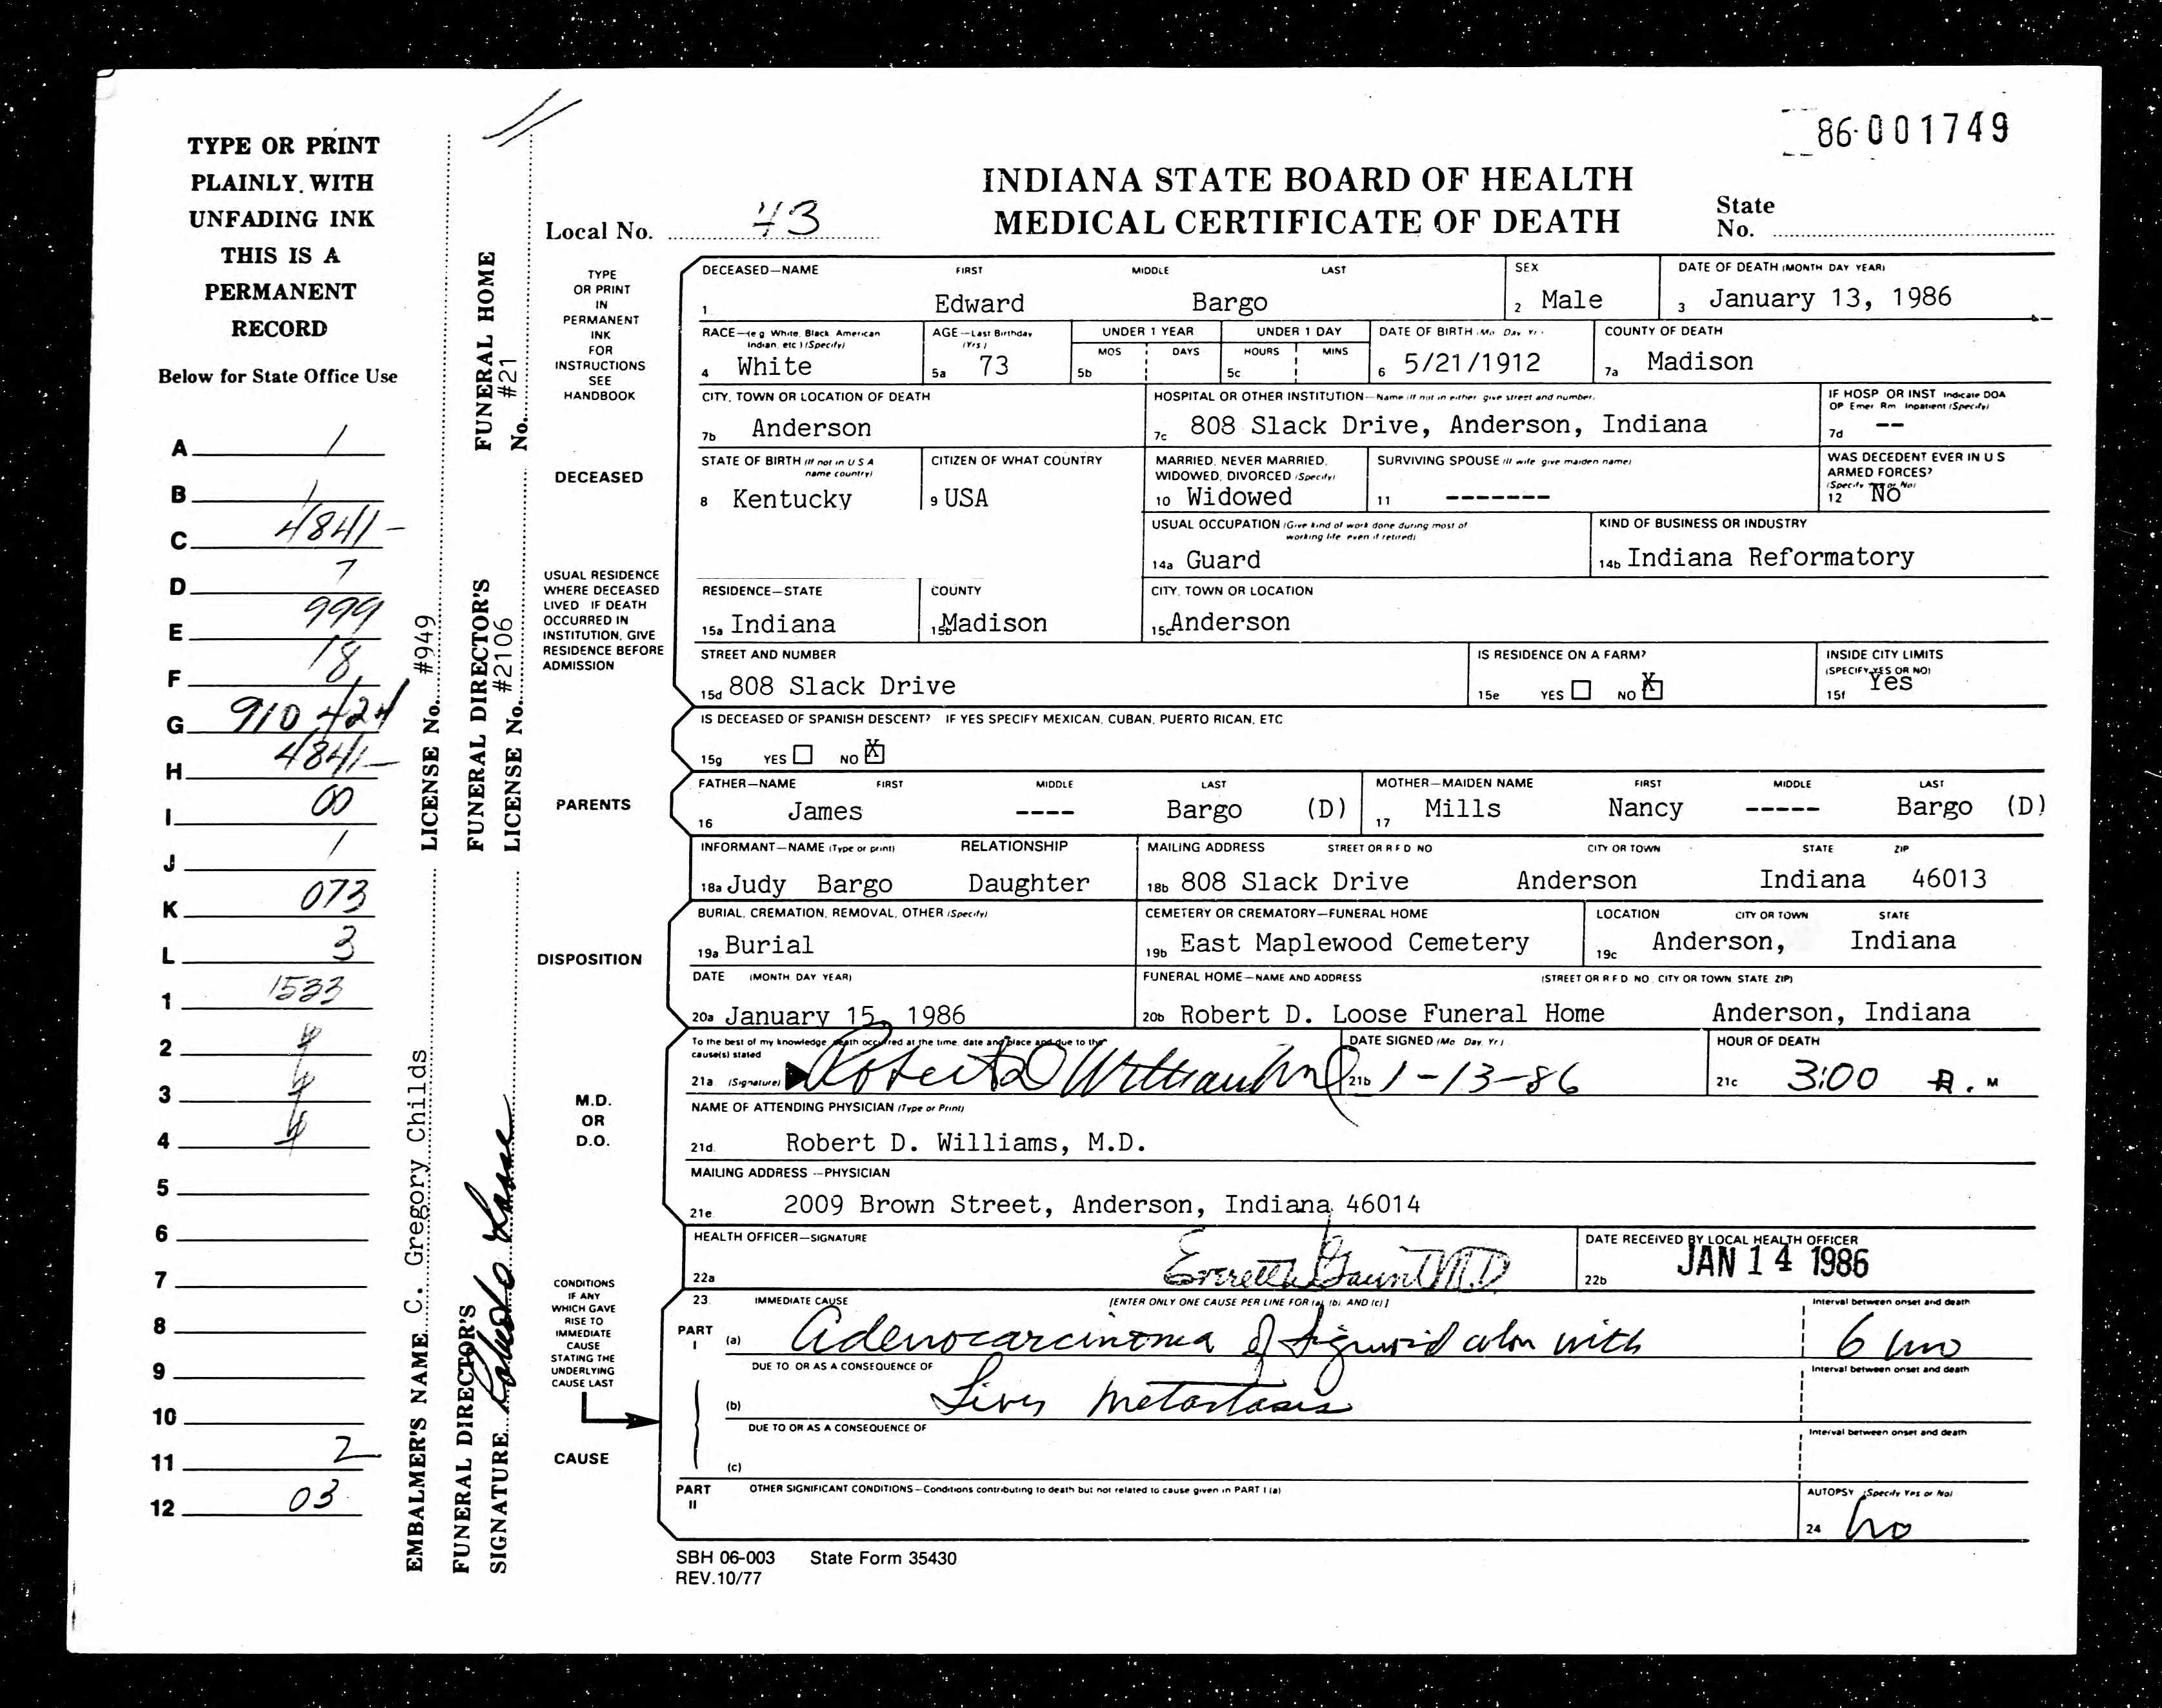 86-001749
TYPE OR PRINT
PLAINLY WITH
UNFADING INK
THIS IS A
PERMANENT
RECORD
Below for State Office Use
A 1
B 1
C 4841-
D 7
E 999
F 18
G 910 424
H 4841-
I 00
J 1
K 073
L 3
1 1533
2
3
4
5
6
7
8
9
10
11 2
12 03
EMBALMER'S NAME C. Gregory Childs LICENSE No. #949
FUNERAL DIRECTOR'S SIGNATURE
FUNERAL DIRECTOR'S LICENSE No. #2106
FUNERAL HOME No. #21
INDIANA STATE BOARD OF HEALTH
MEDICAL CERTIFICATE OF DEATH
Local No. 43
State No.
TYPE
OR PRINT
IN
PERMANENT
INK
FOR
INSTRUCTIONS
SEE
HANDBOOK
DECEASED—NAME FIRST MIDDLE LAST
1 Edward Bargo
SEX
2 Male
DATE OF DEATH (MONTH DAY YEAR)
3 January 13, 1986
RACE—(e g White, Black, American Indian, etc ) (Specify)
4 White
AGE—Last Birthday (Yrs )
5a 73
UNDER 1 YEAR
MOS DAYS
5b
UNDER 1 DAY
HOURS MINS
5c
DATE OF BIRTH (Mo Day Yr)
6 5/21/1912
COUNTY OF DEATH
7a Madison
CITY, TOWN OR LOCATION OF DEATH
7b Anderson
HOSPITAL OR OTHER INSTITUTION—Name (If not in either give street and number)
7c 808 Slack Drive, Anderson, Indiana
IF HOSP OR INST Indicate DOA
OP Emer Rm Inpatient (Specify)
7d --
DECEASED
STATE OF BIRTH (If not in U S A name country)
8 Kentucky
CITIZEN OF WHAT COUNTRY
9 USA
MARRIED, NEVER MARRIED,
WIDOWED, DIVORCED (Specify)
10 Widowed
SURVIVING SPOUSE (If wife give maiden name)
11 -------
WAS DECEDENT EVER IN U S
ARMED FORCES?
(Specify Yes or No)
12 No
USUAL OCCUPATION (Give kind of work done during most of
working life even if retired)
14a Guard
KIND OF BUSINESS OR INDUSTRY
14b Indiana Reformatory
USUAL RESIDENCE
WHERE DECEASED
LIVED IF DEATH
OCCURRED IN
INSTITUTION, GIVE
RESIDENCE BEFORE
ADMISSION
RESIDENCE—STATE
15a Indiana
COUNTY
15b Madison
CITY, TOWN OR LOCATION
15c Anderson
STREET AND NUMBER
15d 808 Slack Drive
IS RESIDENCE ON A FARM?
15e YES NO X
INSIDE CITY LIMITS
(SPECIFY YES OR NO)
15f Yes
IS DECEASED OF SPANISH DESCENT? IF YES SPECIFY MEXICAN, CUBAN, PUERTO RICAN, ETC
15g YES NO X
PARENTS
FATHER—NAME FIRST MIDDLE LAST
16 James ---- Bargo (D)
MOTHER—MAIDEN NAME FIRST MIDDLE LAST
17 Mills Nancy ----- Bargo (D)
INFORMANT—NAME (Type or print) RELATIONSHIP
18a Judy Bargo Daughter
MAILING ADDRESS STREET OR R F D NO CITY OR TOWN STATE ZIP
18b 808 Slack Drive Anderson Indiana 46013
DISPOSITION
BURIAL, CREMATION, REMOVAL, OTHER (Specify)
19a Burial
CEMETERY OR CREMATORY—FUNERAL HOME
19b East Maplewood Cemetery
LOCATION CITY OR TOWN STATE
19c Anderson, Indiana
DATE (MONTH DAY YEAR)
20a January 15, 1986
FUNERAL HOME—NAME AND ADDRESS (STREET OR R F D NO, CITY OR TOWN STATE ZIP)
20b Robert D. Loose Funeral Home Anderson, Indiana
M.D.
OR
D.O.
To the best of my knowledge, death occurred at the time, date and place and due to the
cause(s) stated
21a (Signature) Robert D Williams MD
DATE SIGNED (Mo Day, Yr)
21b 1-13-86
HOUR OF DEATH
21c 3:00 A. M
NAME OF ATTENDING PHYSICIAN (Type or Print)
21d Robert D. Williams, M.D.
MAILING ADDRESS—PHYSICIAN
21e 2009 Brown Street, Anderson, Indiana 46014
HEALTH OFFICER—SIGNATURE
22a Everett Gaunt M.D
DATE RECEIVED BY LOCAL HEALTH OFFICER
22b JAN 14 1986
CONDITIONS
IF ANY
WHICH GAVE
RISE TO
IMMEDIATE
CAUSE
STATING THE
UNDERLYING
CAUSE LAST
CAUSE
23 IMMEDIATE CAUSE [ENTER ONLY ONE CAUSE PER LINE FOR (a), (b), AND (c)]
PART I (a) Adenocarcinoma of sigmoid colon with
Interval between onset and death
6 mo
DUE TO OR AS A CONSEQUENCE OF
(b) Liver metastasis
Interval between onset and death
DUE TO OR AS A CONSEQUENCE OF
(c)
Interval between onset and death
PART II OTHER SIGNIFICANT CONDITIONS—Conditions contributing to death but not related to cause given in PART I (a)
AUTOPSY (Specify Yes or No)
24 no
SBH 06-003 State Form 35430
REV.10/77